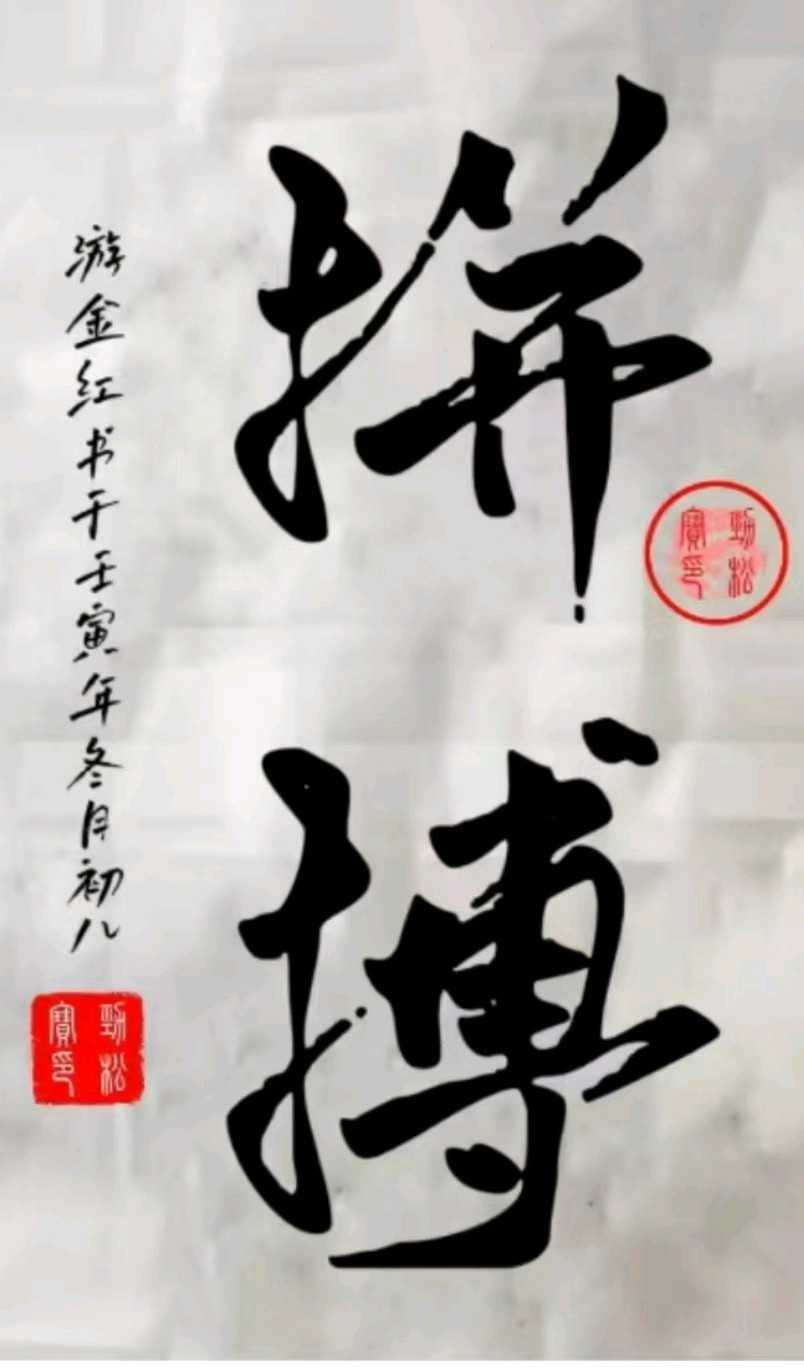 拼搏
游金红书于壬寅年冬月初八
劲松
寶印
劲松
寶印